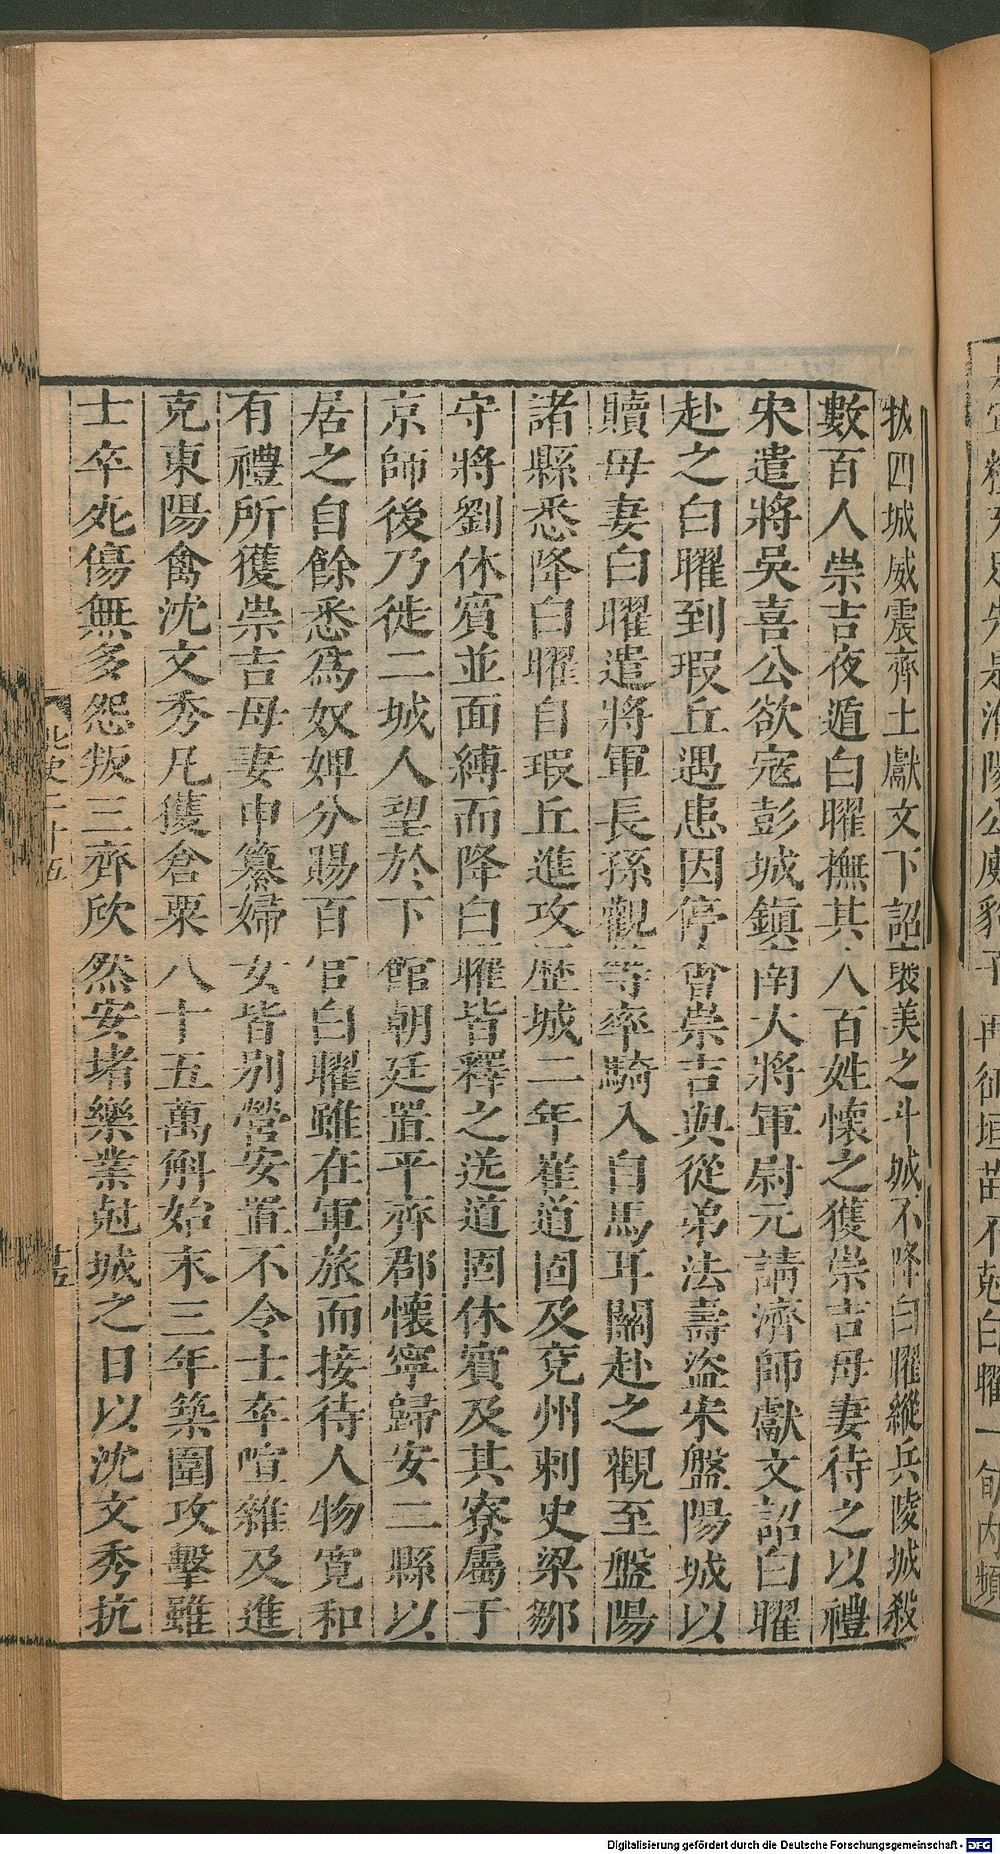 拔四城威震齊土獻文下詔褒美之斗城不降白曜縱兵陵城殺
數百人崇吉夜遁白曜撫其人百姓懷之獲崇吉母妻待之以禮
宋遣將吳喜公欲寇彭城鎮南大將軍尉元請濟師獻文詔白曜
赴之白曜到瑕丘遇患因停會崇吉與從弟法壽盜宋盤陽城以
贖母妻白曜遣將軍長孫觀等率騎入自馬耳關赴之觀至盤陽
諸縣悉降白曜自瑕丘進攻歷城二年崔道固及兗州刺史梁鄒
守將劉休賓並面縛而降白曜皆釋之送道固休賓及其寮屬于
京師後乃徙二城人望於下館朝廷置平齊郡懷寧歸安二縣以
居之自餘悉爲奴婢分賜百官白曜雖在軍旅而接待人物寬和
有禮所獲崇吉母妻申纂婦女皆別營安置不令士卒喧雜及進
克東陽禽沈文秀凡獲倉粟八十五萬斛始末三年築圍攻擊雖
士卒死傷無多怨叛三齊欣然安堵樂業尅城之日以沈文秀抗
北史二十五
再征垣苗不尅白曜一旬內頻
Digitalisierung gefördert durch die Deutsche Forschungsgemeinschaft - DFG